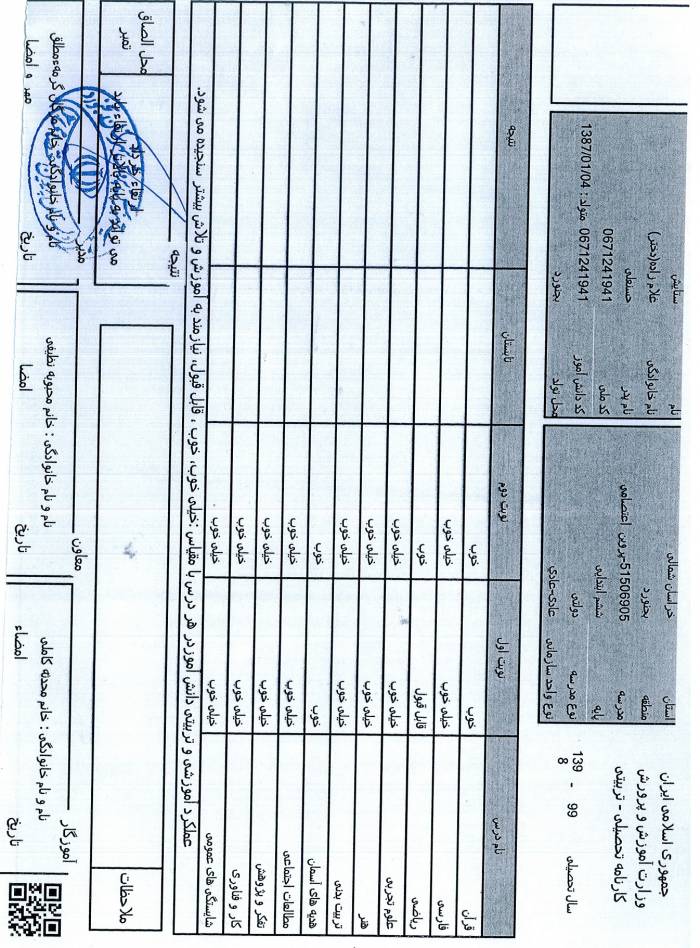 جمهوری اسلامی ایران
وزارت آموزش و پرورش
کارنامه تحصیلی - تربیتی
سال تحصیلی 99 - 1398
استان خراسان شمالی
منطقه بجنورد
مدرسه 51506905-پروین اعتصامی
پایه ششم ابتدایی
نوع مدرسه دولتی
نوع واحد سازمانی عادی-عادی
نام ستایش
نام خانوادگی غلام زاده(دختر)
نام پدر حسنعلی
کد ملی 0671241941
کد دانش آموز 0671241941 متولد : 1387/01/04
محل تولد بجنورد
نام درس نوبت اول نوبت دوم تابستان نتیجه
قرآن خوب خوب
فارسی خیلی خوب خیلی خوب
ریاضی قابل قبول خوب
علوم تجربی خیلی خوب خیلی خوب
هنر خیلی خوب خیلی خوب
تربیت بدنی خیلی خوب خیلی خوب
هدیه های آسمان خوب خوب
مطالعات اجتماعی خیلی خوب خیلی خوب
تفکر و پژوهش خیلی خوب خیلی خوب
کار و فناوری خیلی خوب خیلی خوب
شایستگی های عمومی خیلی خوب خیلی خوب
عملکرد آموزشی و تربیتی دانش آموزدر هر درس با مقیاس :خیلی خوب، خوب ، قابل قبول، نیازمند به آموزش و تلاش بیشتر سنجیده می شود.
ملاحظات
نتیجه
می تواند به پایه بالاتر ارتقاء یابد
ارتقاء خرداد
محل الصاق
تمبر
آموزگار
نام و نام خانوادگی : خانم محدثه کاملی
تاریخ امضاء
معاون
نام و نام خانوادگی : خانم محبوبه نظیفی
تاریخ امضا
مدیر
نام و نام خانوادگی: خانم مژگان گرمه
تاریخ مهر و امضا